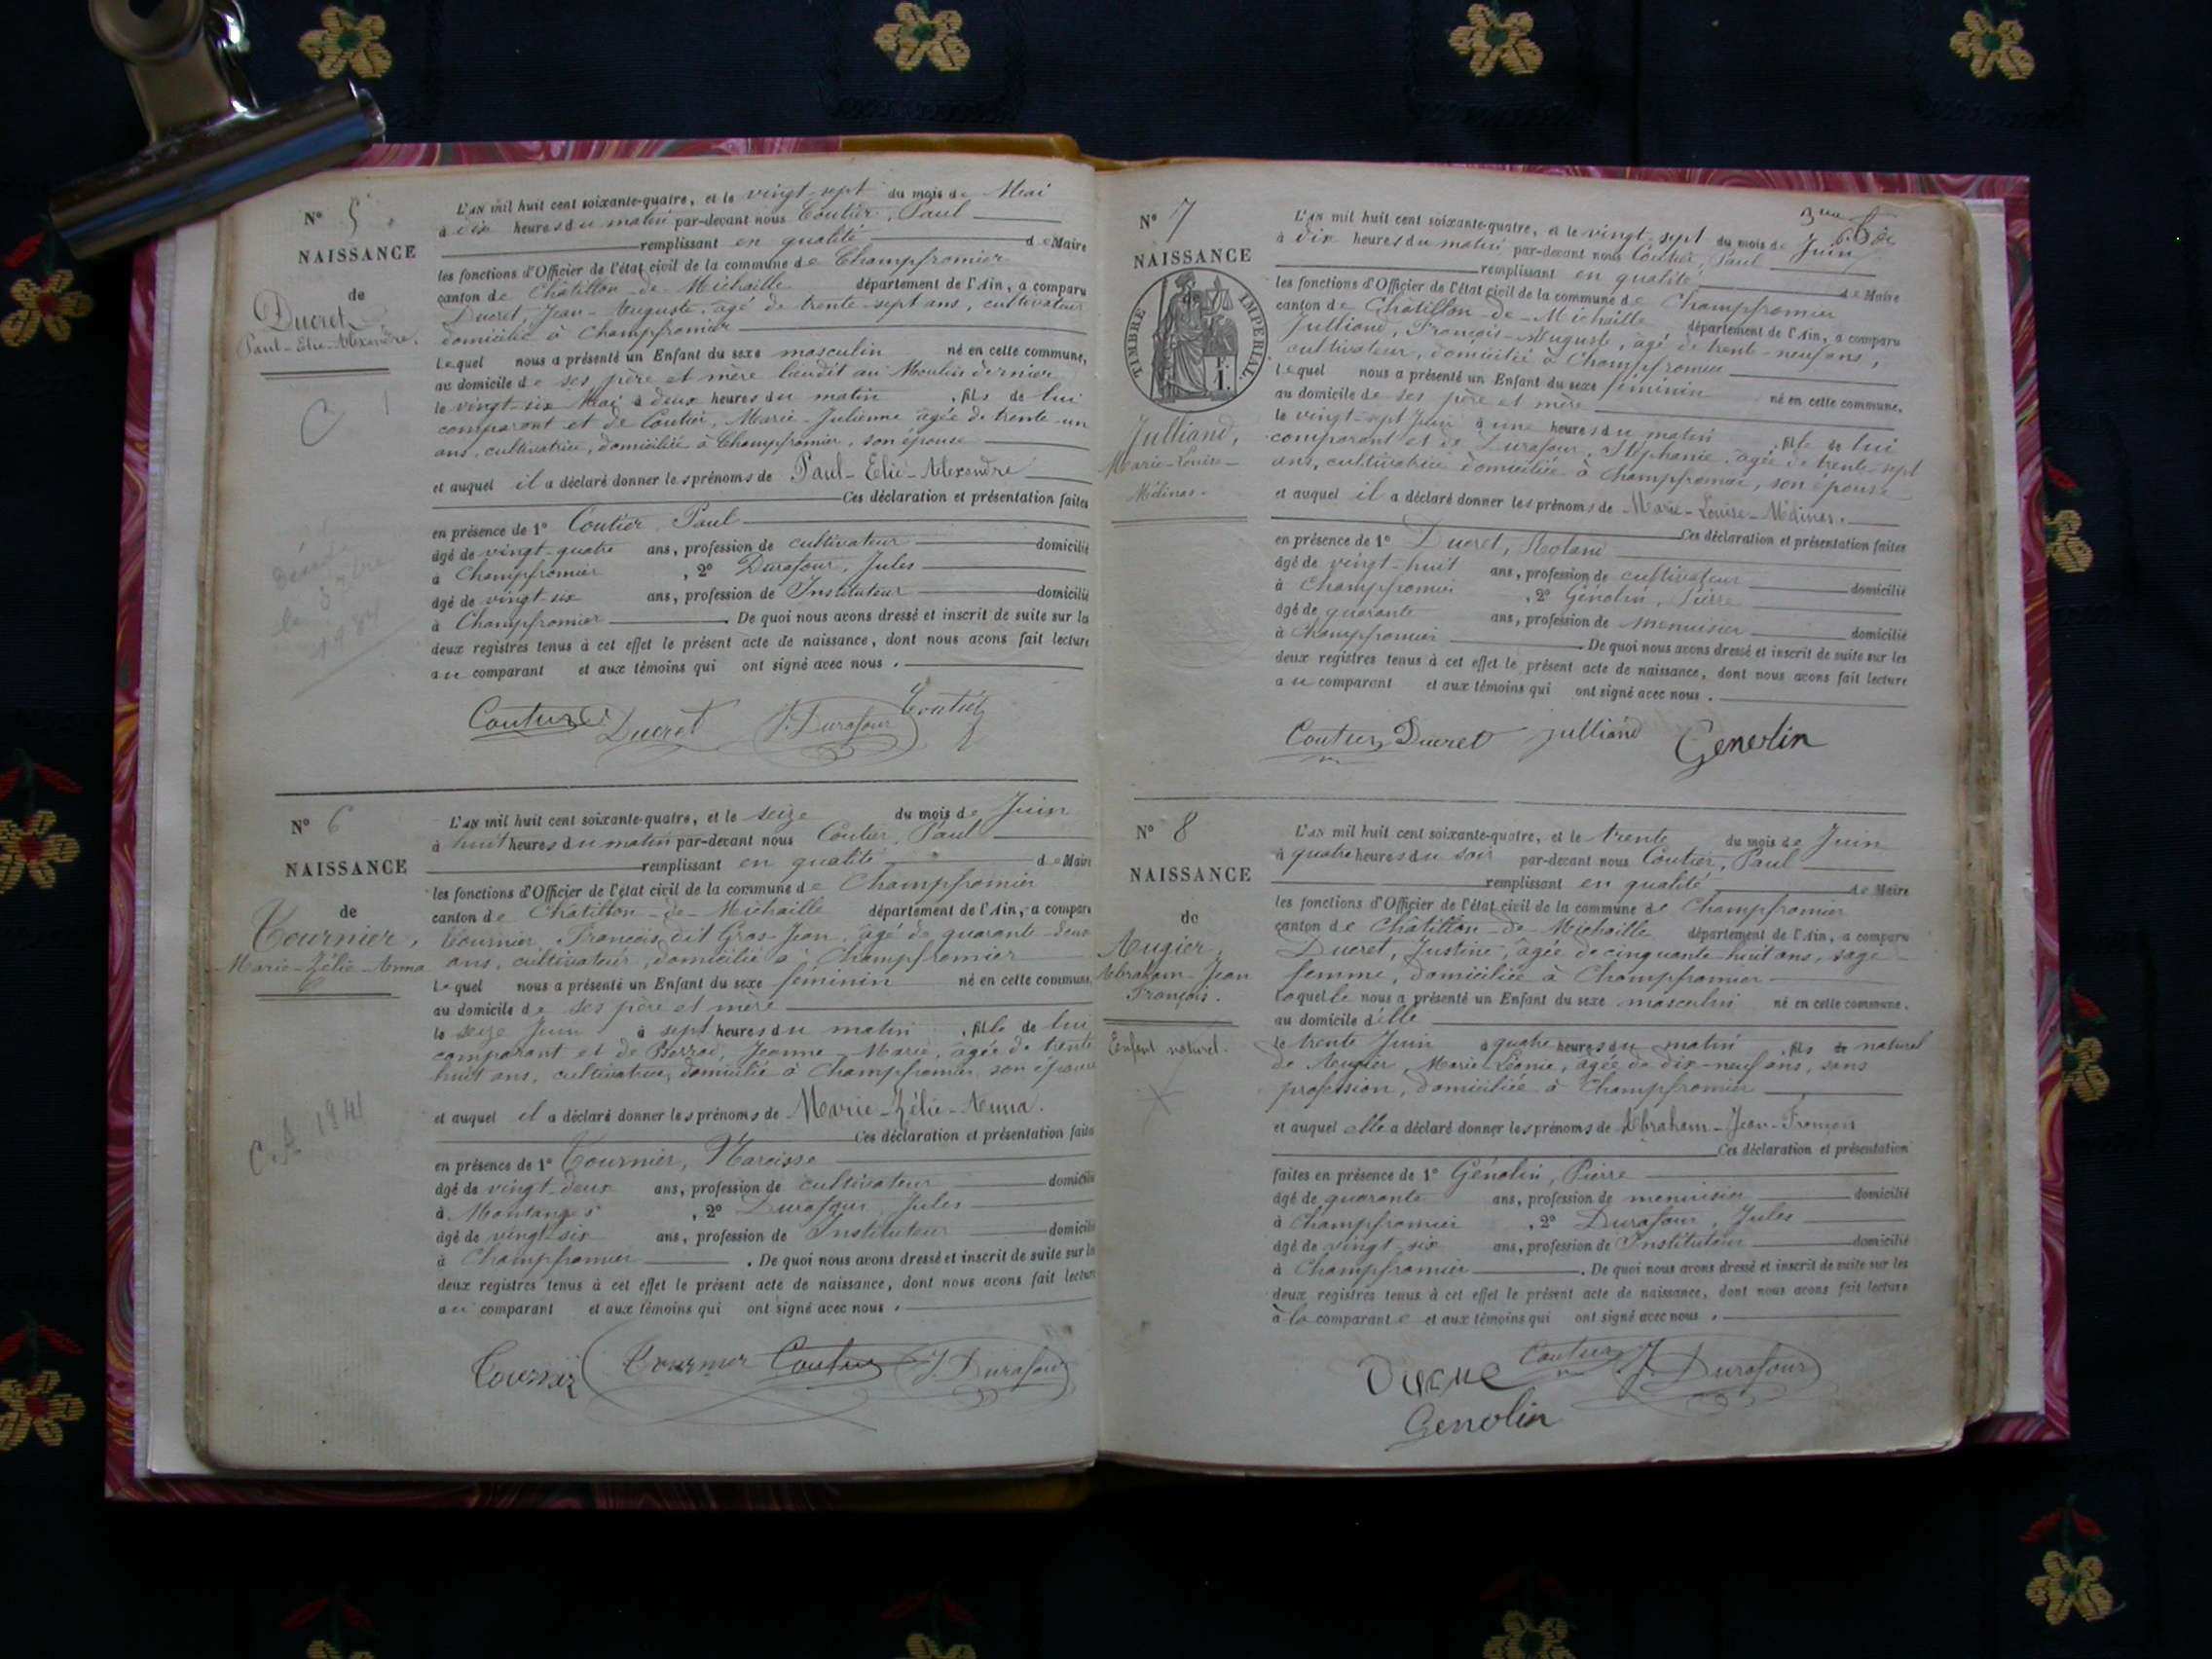 N° 5
NAISSANCE
de
Ducret
Paul-Elie-Alexandre.
C
le
L'AN mil huit cent soixante-quatre, et le vingt-sept du mois de Mai
à dix heures du matin par-devant nous Coutier, Paul
remplissant en qualité de Maire
les fonctions d'Officier de l'état civil de la commune de Champfromier
canton de Châtillon-de-Michaille département de l'Ain, a comparu
Ducret, Jean-Auguste, âgé de trente-sept ans, cultivateur
domicilié à Champfromier
Lequel nous a présenté un Enfant du sexe masculin né en cette commune,
au domicile de ses père et mère lieudit au Moulin dernier
le vingt-six Mai à deux heures du matin, fils de lui
comparant et de Coutier, Marie-Julienne âgée de trente-un
ans, cultivatrice, domiciliée à Champfromier, son épouse
et auquel il a déclaré donner les prénoms de Paul-Elie-Alexandre
Ces déclaration et présentation faites
en présence de 1° Coutier, Paul
âgé de vingt-quatre ans, profession de cultivateur domicilié
à Champfromier, 2° Durafour, Jules
âgé de vingt-six ans, profession de Instituteur domicilié
à Champfromier. De quoi nous avons dressé et inscrit de suite sur la
deux registres tenus à cet effet le présent acte de naissance, dont nous avons fait lecture
au comparant et aux témoins qui ont signé avec nous.
Ducret J. Durafour
N° 6
NAISSANCE
de
Tournier,
Marie-Zélie-Anna
C. A. 1941
L'AN mil huit cent soixante-quatre, et le seize du mois de Juin
à huit heures du matin par-devant nous Coutier, Paul
remplissant en qualité de Maire
les fonctions d'Officier de l'état civil de la commune de Champfromier
canton de Châtillon-de-Michaille département de l'Ain, a comparu
Tournier, François dit Gros-Jean, âgé de quarante-deux
ans, cultivateur, domicilié à Champfromier
Lequel nous a présenté un Enfant du sexe féminin né en cette commune,
au domicile de ses père et mère
le seize Juin à sept heures du matin, fille de lui
comparant et de Jeanne-Marie, âgée de trente
huit ans, cultivatrice, domiciliée à Champfromier, son épouse
et auquel il a déclaré donner les prénoms de Marie-Zélie-Anna.
Ces déclaration et présentation faites
en présence de 1° Tournier, Narcisse
âgé de vingt-deux ans, profession de cultivateur domicilié
à Montanges, 2° Durafour, Jules
âgé de vingt-six ans, profession de Instituteur domicilié
à Champfromier. De quoi nous avons dressé et inscrit de suite sur la
deux registres tenus à cet effet le présent acte de naissance, dont nous avons fait lecture
au comparant et aux témoins qui ont signé avec nous.
Tournier Tournier J. Durafour
N° 7
NAISSANCE
TIMBRE IMPERIAL
F. 1.
Julliand,
Marie-Louise-
Médinas.
L'AN mil huit cent soixante-quatre, et le vingt-sept du mois de Juin
à dix heures du matin par-devant nous Coutier, Paul
remplissant en qualité de Maire
les fonctions d'Officier de l'état civil de la commune de Champfromier
canton de Châtillon-de-Michaille, département de l'Ain, a comparu
Julliand, François-Auguste, âgé de trente-neuf ans,
cultivateur, domicilié à Champfromier
Lequel nous a présenté un Enfant du sexe féminin né en cette commune,
au domicile de ses père et mère
le vingt-sept Juin à une heures du matin, fille de lui
comparant et de Durafour, Stéphanie, âgée de trente-sept
ans, cultivatrice domiciliée à Champfromier, son épouse
et auquel il a déclaré donner les prénoms de Marie-Louise-Médinas.
Ces déclaration et présentation faites
en présence de 1° Ducret, Roland
âgé de vingt-huit ans, profession de cultivateur domicilié
à Champfromier, 2° Génolin, Pierre
âgé de quarante ans, profession de menuisier domicilié
à Champfromier. De quoi nous avons dressé et inscrit de suite sur les
deux registres tenus à cet effet le présent acte de naissance, dont nous avons fait lecture
au comparant et aux témoins qui ont signé avec nous.
Ducret julliand Genolin
N° 8
NAISSANCE
de
Augier,
Abraham-Jean
François.
Enfant naturel.
L'AN mil huit cent soixante-quatre, et le trente du mois de Juin
à quatre heures du soir par-devant nous Coutier, Paul
remplissant en qualité de Maire
les fonctions d'Officier de l'état civil de la commune de Champfromier
canton de Châtillon-de-Michaille département de l'Ain, a comparu
Ducret, Justine, âgée de cinquante-huit ans, sage-
femme, domiciliée à Champfromier
Laquelle nous a présenté un Enfant du sexe masculin né en cette commune,
au domicile d'elle
le trente Juin à quatre heures du matin, fils de naturel
de Augier, Marie-Léonie, âgée de dix-neuf ans, sans
profession, domiciliée à Champfromier
et auquel elle a déclaré donner les prénoms de Abraham-Jean-François
Ces déclaration et présentation
faites en présence de 1° Génolin, Pierre
âgé de quarante ans, profession de menuisier domicilié
à Champfromier, 2° Durafour, Jules
âgé de vingt-six ans, profession de Instituteur domicilié
à Champfromier. De quoi nous avons dressé et inscrit de suite sur les
deux registres tenus à cet effet le présent acte de naissance, dont nous avons fait lecture
à la comparante et aux témoins qui ont signé avec nous.
J. Durafour
Genolin